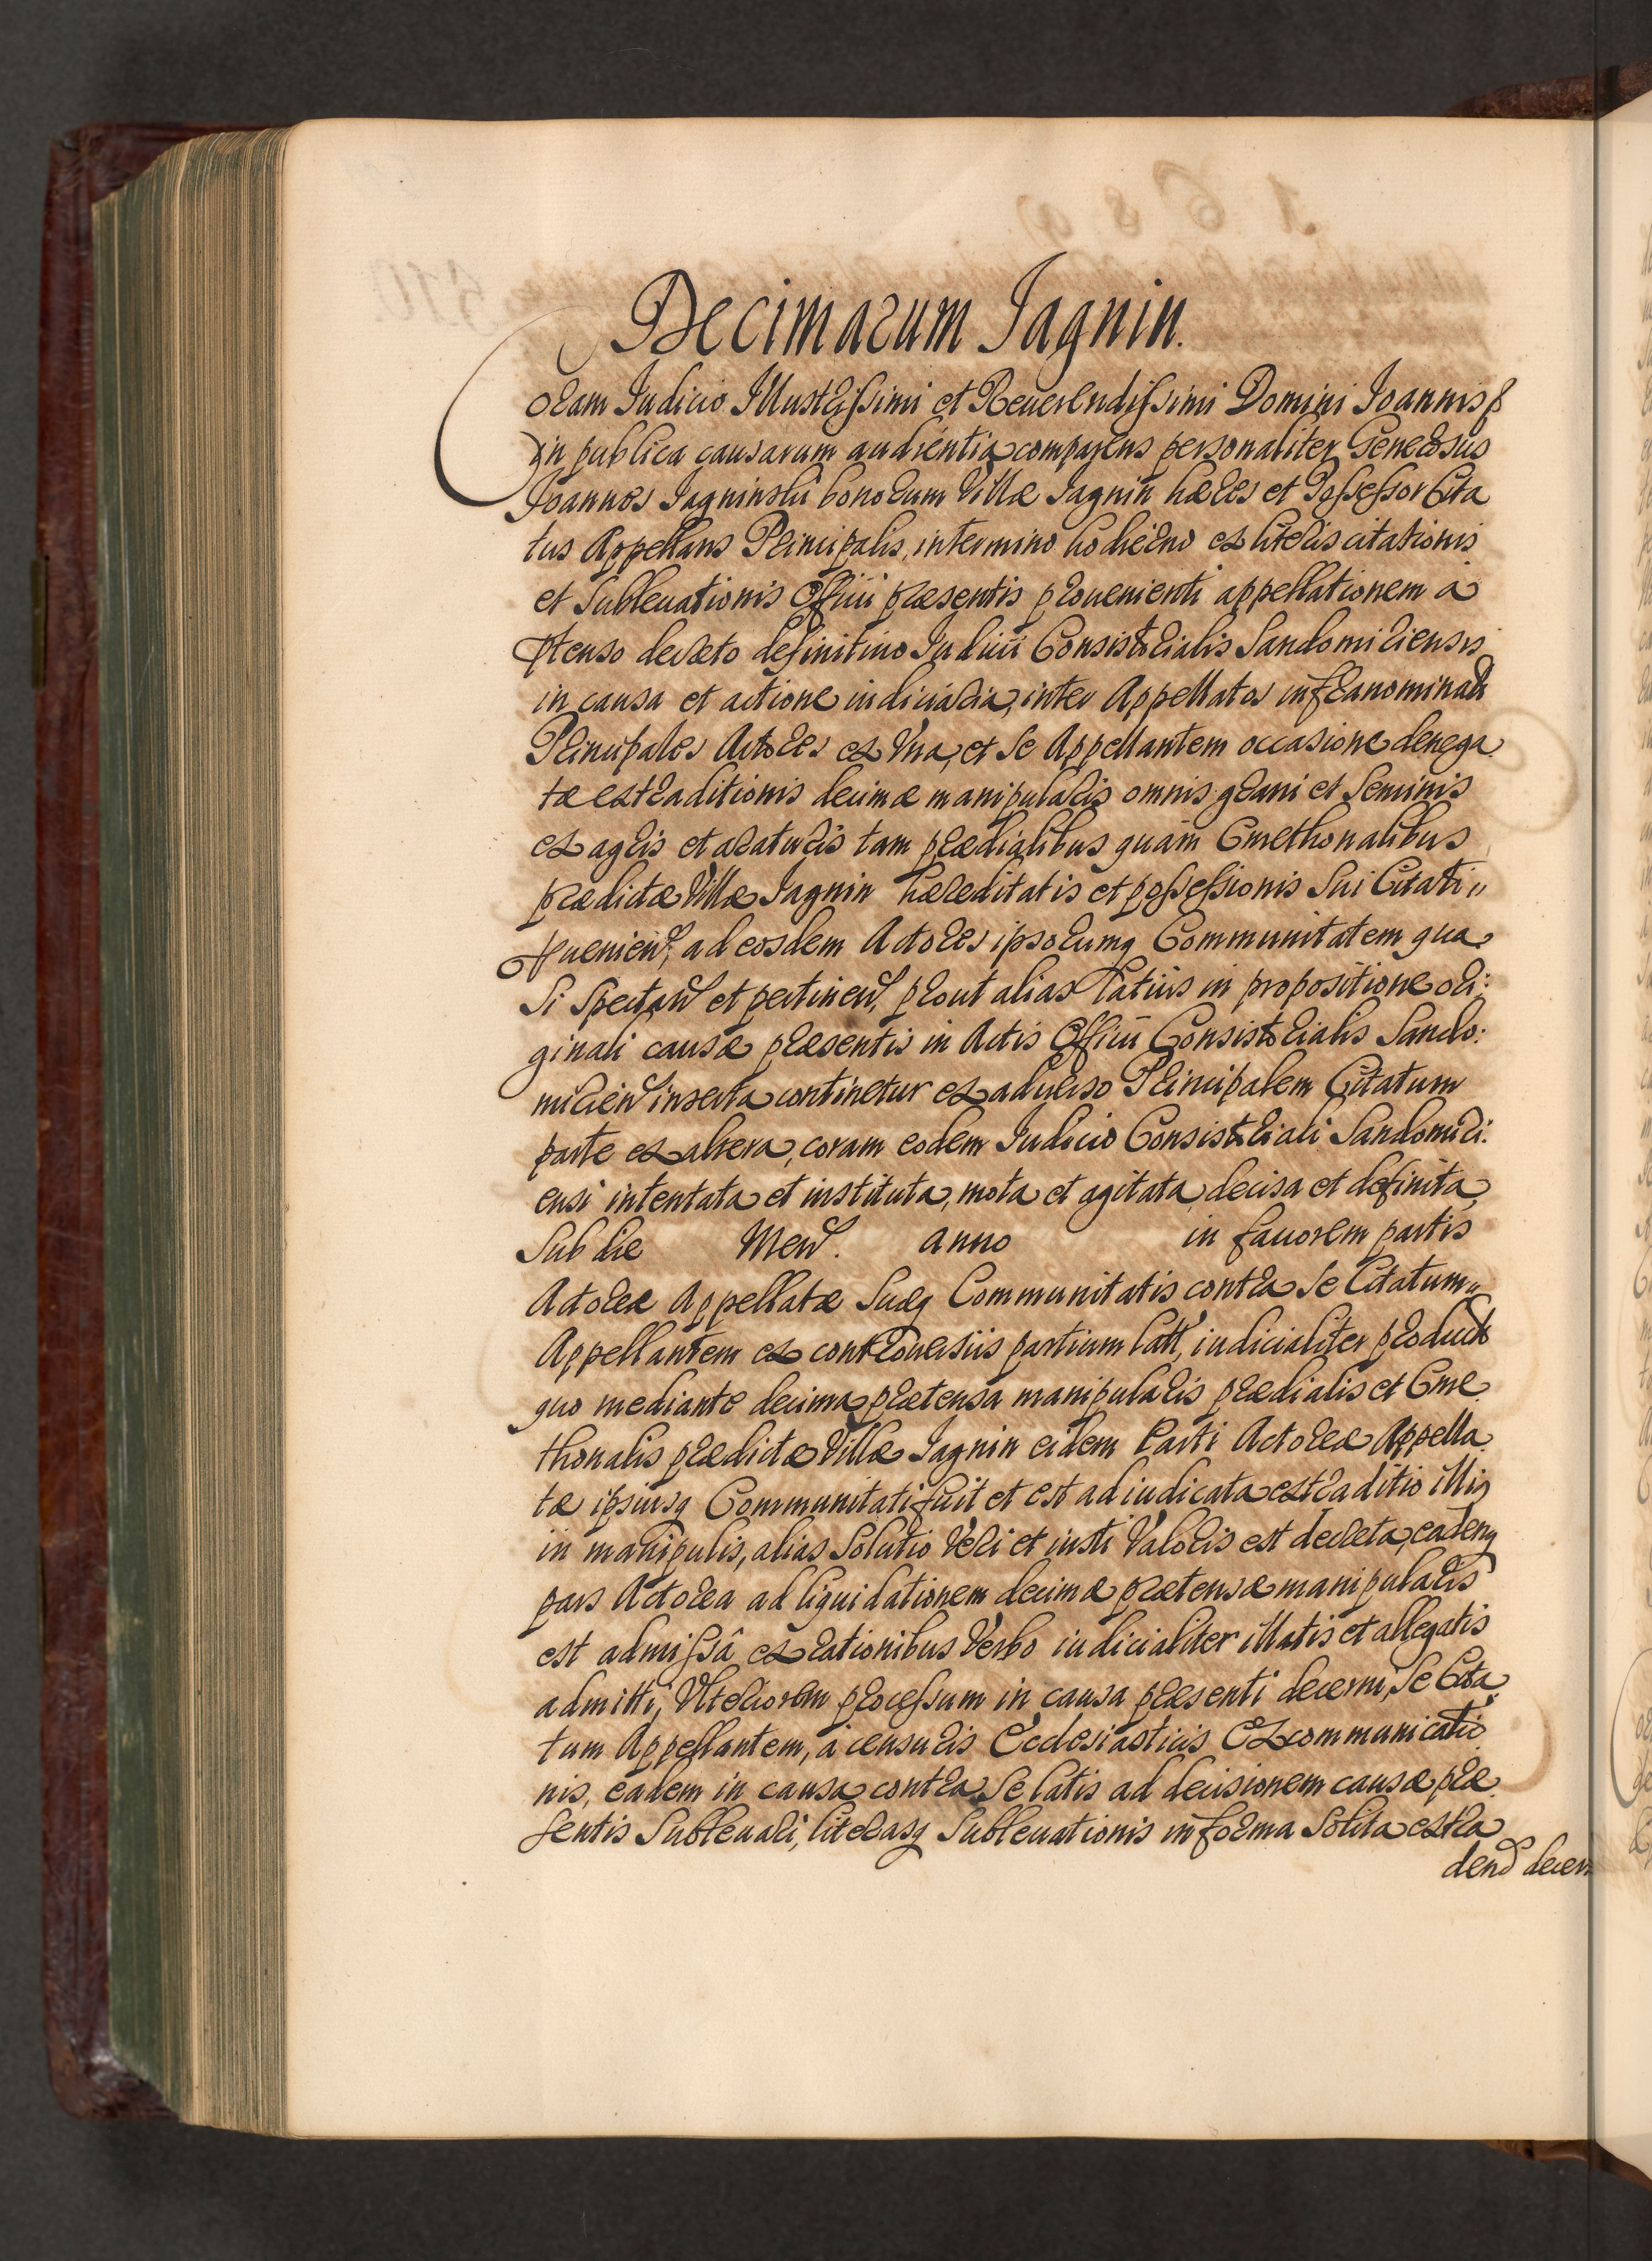 Decimarum Jagnin.
Coram Judicio Illustrissimi et Reuerendissimi Domini Joannis p
in publica causarum audientia comparens personaliter Generosus
Joannes Jagninski bonorum Villæ Jagnin hæres et Possessor Cita
tus Appellans Principalis, in termino hodierno ex literis citationis
et Subleuationis Officii præsentis prouenienti appellationem à
ptenso decreto definitiuo Iudicii Consistorialis Sandomiriensis
in causa et actione iudiciaria, inter Appellatos infranominati
Principales Actores ex Vna, et Se Appellantem occasione denega
tæ extraditionis decimæ manipularis omnis grani et Seminis
ex agris et araturis tam prædialibus quàm Cmethonalibus
prædictæ Villæ Jagnin hæreditatis et possessionis Sui Citati
ꝓuenien, ad eosdem Actores ipsorumq Communitatem qua
Si Spectan et pertinen, prout alias latius in propositione ori:
ginali causæ præsentis in Actis Officii Consistorialis Sando:
mirien inserta continetur ex aduerso Principalem Citatum
parte ex altera, coram eodem Iudicio Consistoriali Sandomiri:
ensi intentata et instituta, mota et agitata, decisa et definita,
Sub die Men. anno in fauorem partis
Actoreæ Appellatæ Suæq Communitatis contra Se Citatum
Appellantem ex controuersiis partium latt, iudicialiter product
quo mediante decima prætensa manipularis prædialis et Cme
thonalis prædictæ Villæ Jagnin eidem Parti Actoreæ Appella
tæ ipsiusq Communitati fuit et est adiudicata extraditio illis
in manipulis, alias Solutio Veri et iusti Valoris est decreta, eademq
pars Actorea ad liquidationem decimæ prætensæ manipularis
est admissâ ex rationibus Verbo iudicialiter illatis et allegatis
admitti, Vlteriorem processum in causa præsenti decerni, Se Cita
tum Appellantem, à censuris Ecclesiasticis Excommunicatio
nis, eadem in causa contra Se latis ad decisionem causæ præ
sentis Subleuari, literasq Subleuationis in forma Solita extra
dend decern